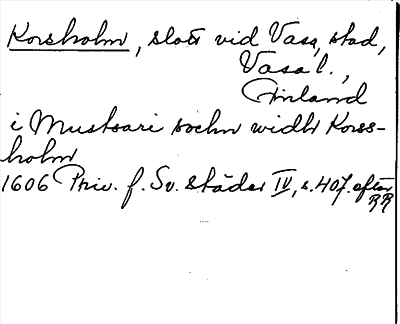 Korsholm, slott vid Vasa, stad,
Vasa l.,
Finland
i Mustsari sochn widh Korss-
holm
1606 Priv. f. Sv. städer IV, s. 407. efter
RR